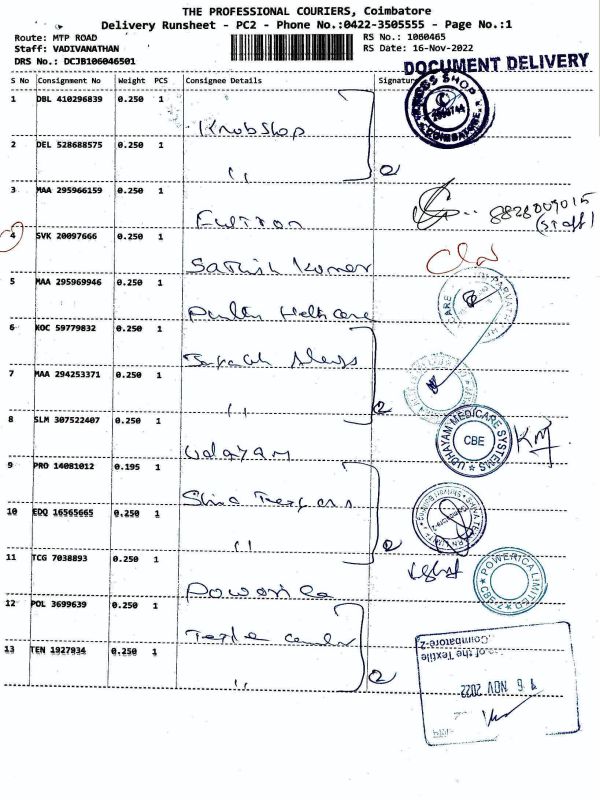 THE PROFESSIONAL COURIERS, Coimbatore
Delivery Runsheet - PC2 - Phone No.:0422-3505555 - Page No.:1
Route: MTP ROAD RS No.: 1060465
Staff: VADIVANATHAN RS Date: 16-Nov-2022
DRS No.: DCJB106046501
DOCUMENT DELIVERY
S No Consignment No Weight PCS Consignee Details Signature
1 DBL 410296839 0.250 1 Knobshop
COIMBATORE
2 DEL 528688575 0.250 1 ,, 2
3 MAA 295966159 0.250 1 8828009015
(Staff)
4 SVK 20097666 0.250 1 Sathish Kumar
5 MAA 295969946 0.250 1
6 KOC 59779832 0.250 1
7 MAA 294253371 0.250 1 ,, 2
8 SLM 307522407 0.250 1 Udayam
UDHAYAM MEDICARE SYSTEMS CBE
9 PRO 14081012 0.195 1
10 EDQ 16565665 0.250 1 ,, 2
11 TCG 7038893 0.250 1 Powerica
POWERICA LIMITED CBE-2
12 POL 3699639 0.250 1
13 TEN 1927934 0.250 1 ,, 2
of the Textile
Coimbatore-2.
16 NOV 2022